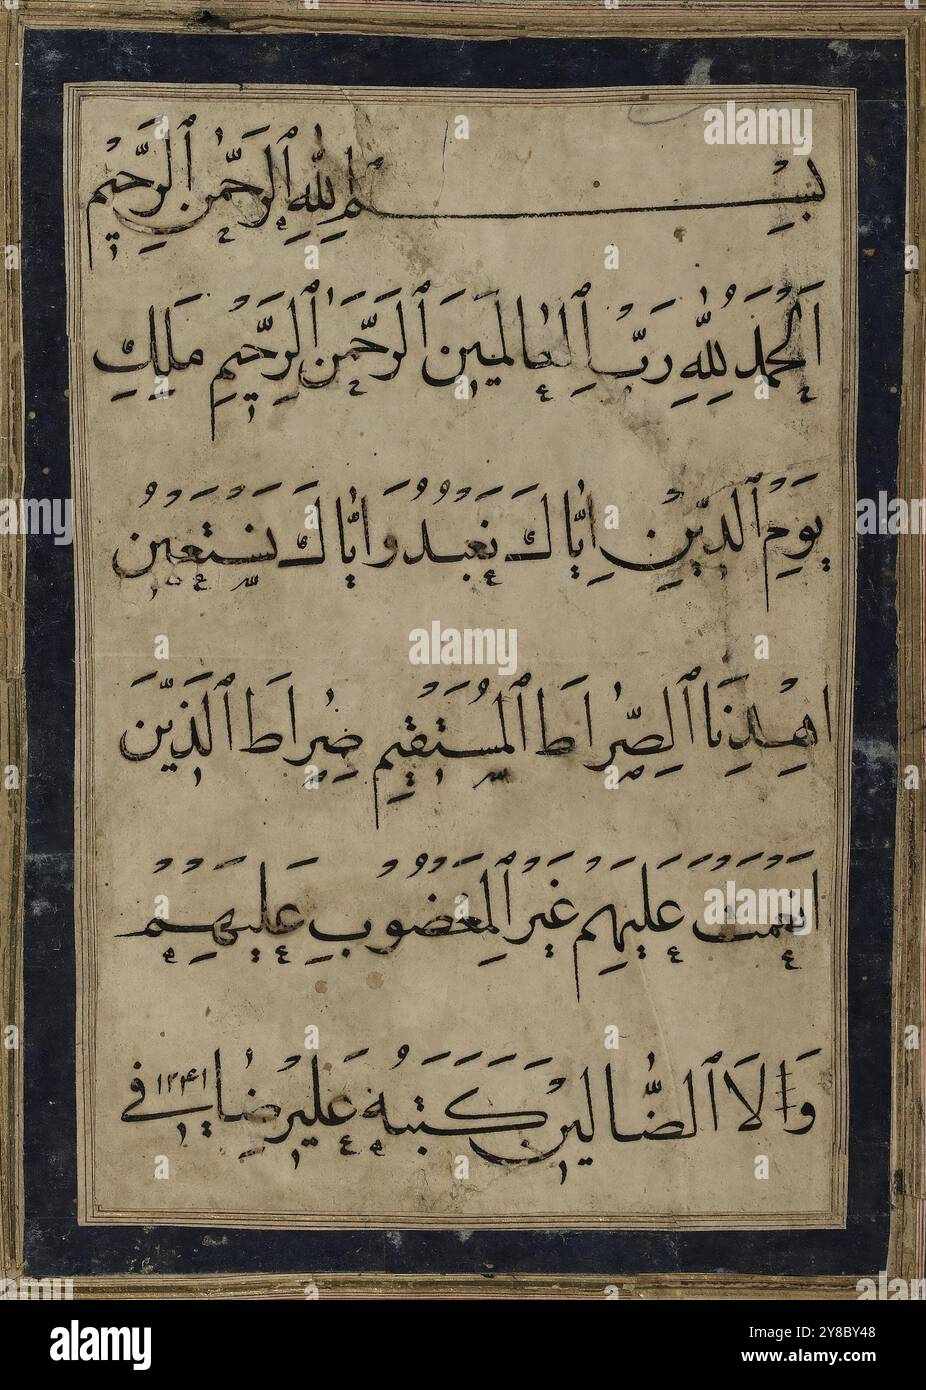 بِسْمِ اللهِ الرَّحْمٰنِ الرَّحِيْمِ
اَلْحَمْدُ لِلّٰهِ رَبِّ الْعَالَمِينَ الرَّحْمٰنِ الرَّحِيْمِ مَلِكِ
يَوْمِ الدِّيْنِ اِيَّاكَ نَعْبُدُ وَاِيَّاكَ نَسْتَعِيْنُ
اهْدِنَا الصِّرَاطَ الْمُسْتَقِيْمَ صِرَاطَ الَّذِيْنَ
اَنْعَمْتَ عَلَيْهِمْ غَيْرِ الْمَغْضُوْبِ عَلَيْهِمْ
وَلَا الضَّالِّيْنَ كَتَبَهُ عَلِيْرِضَا فِي ١٢٤١
alamy
Image ID: Y8BY48
www.alamy.com